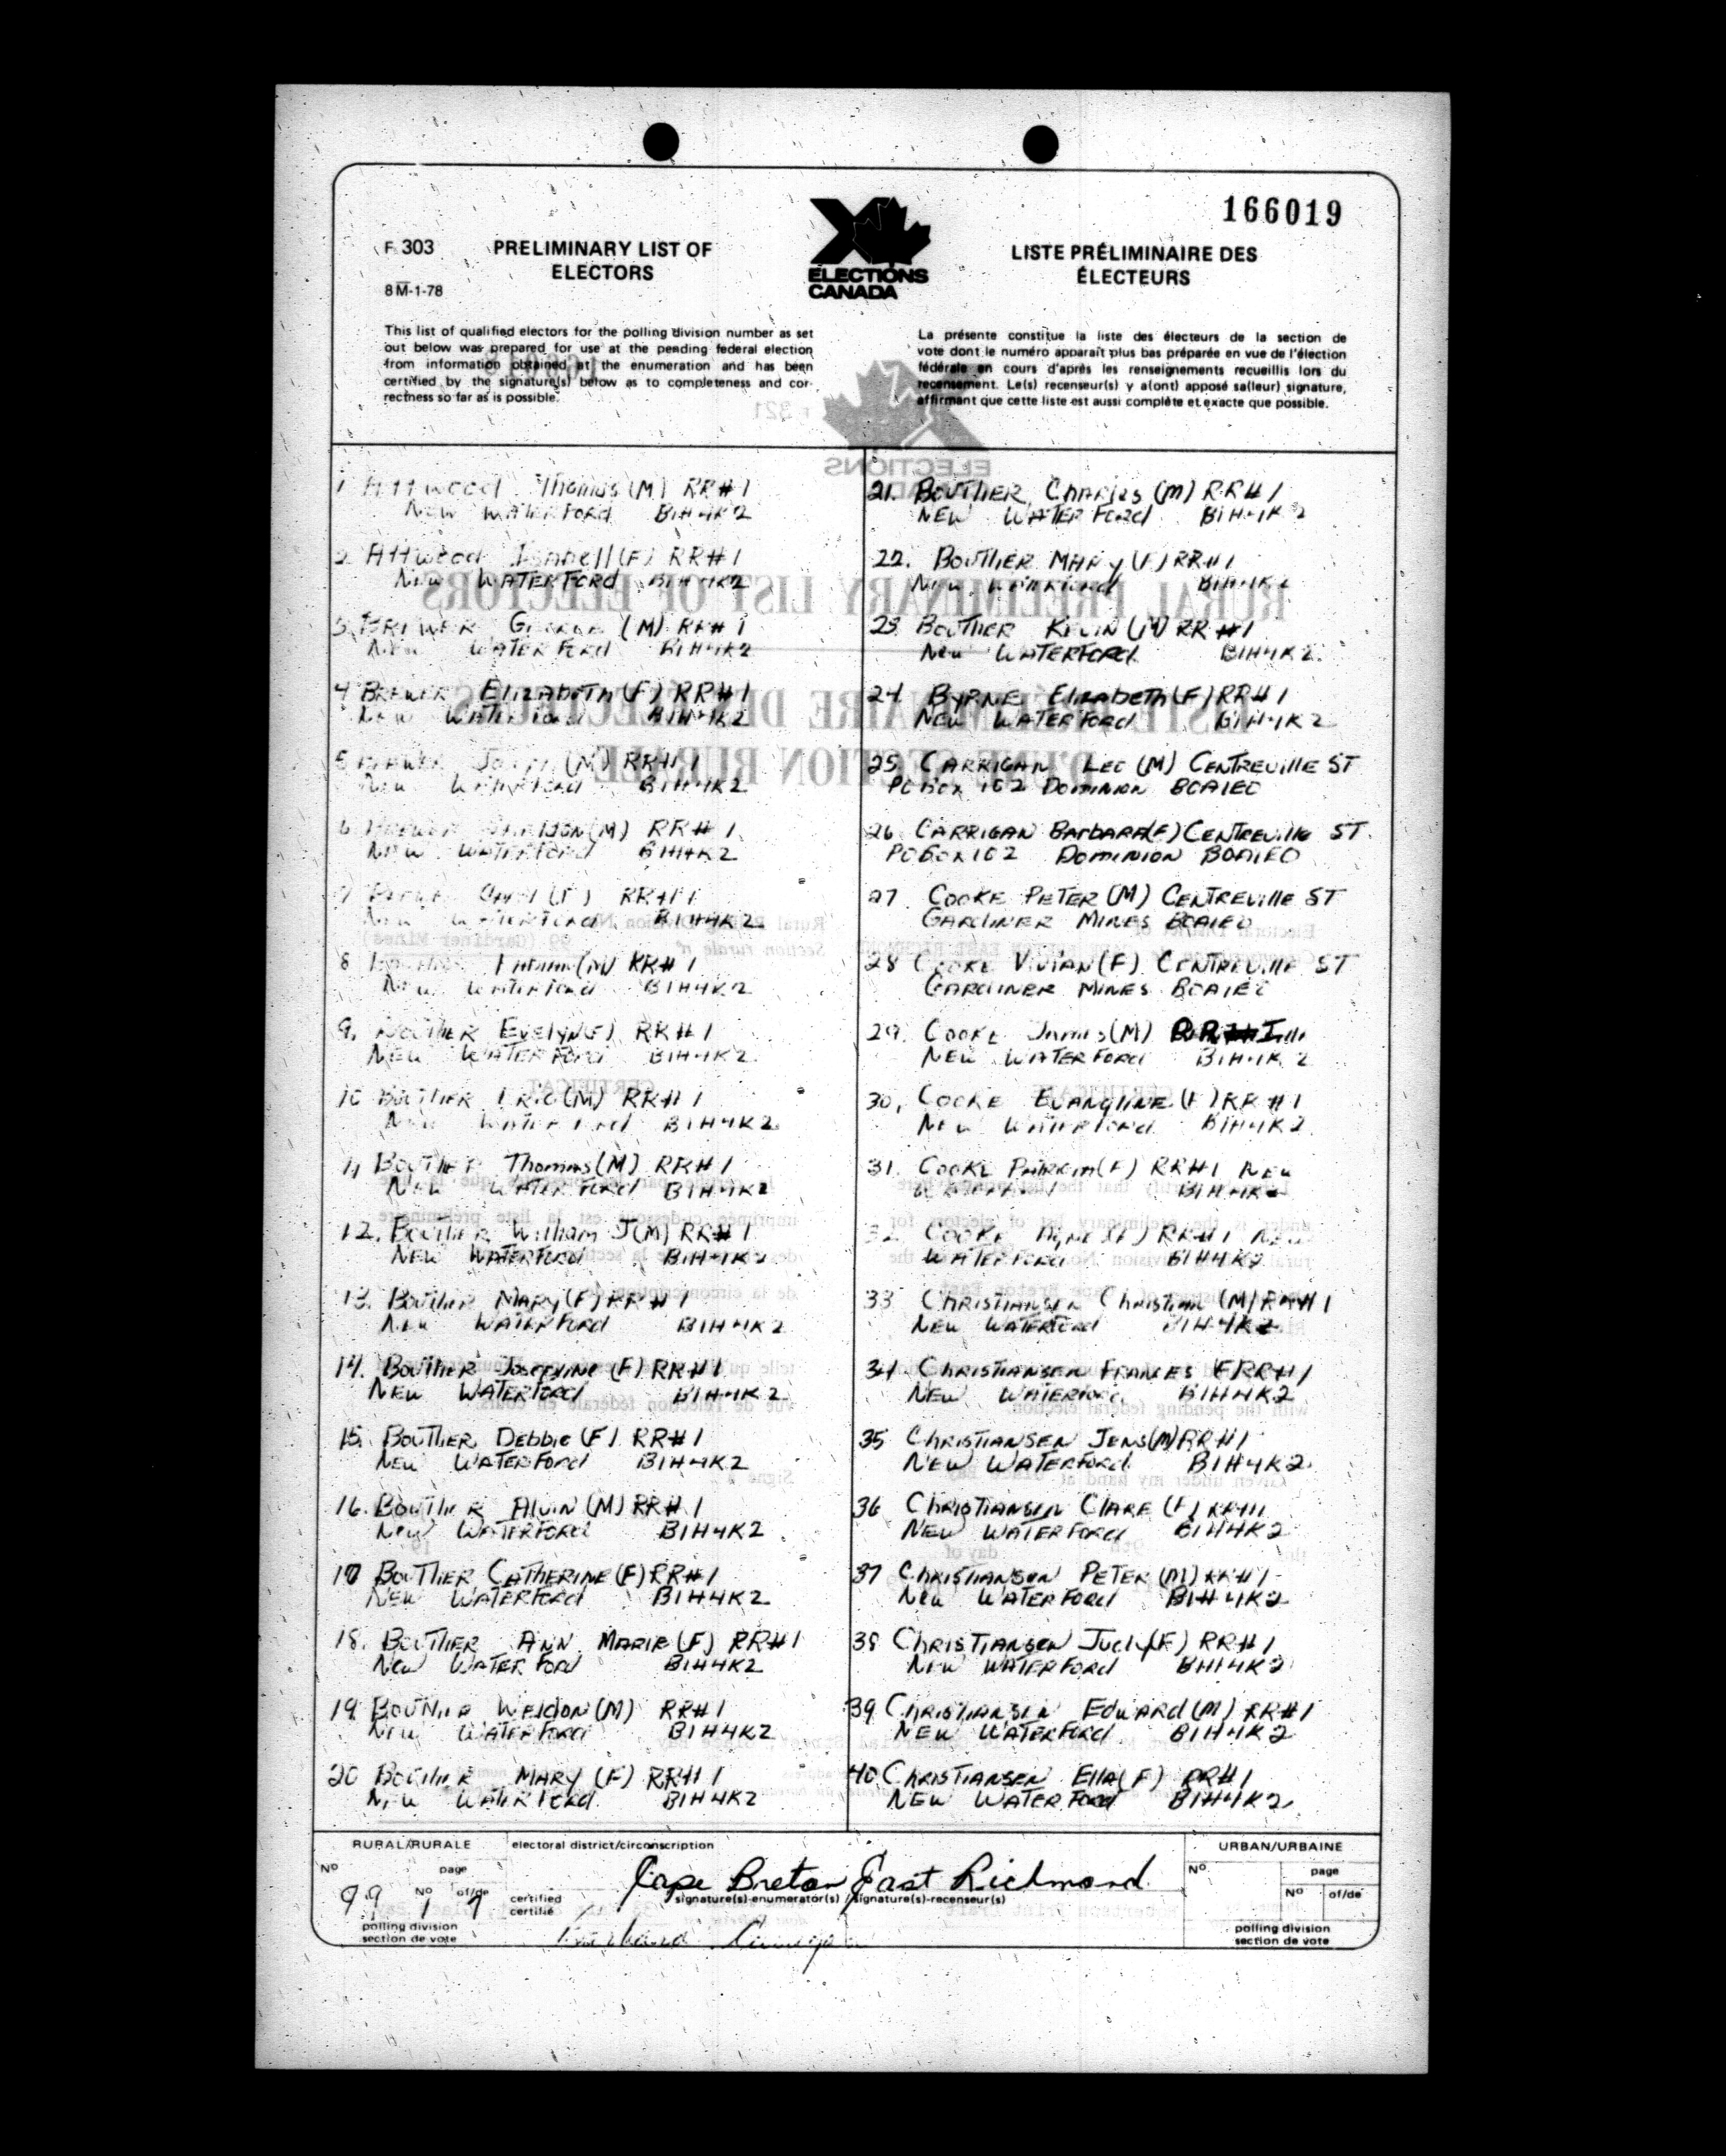 166019
F 303
PRELIMINARY LIST OF
ELECTORS
8 M-1-78
ÉLECTIONS
CANADA
LISTE PRÉLIMINAIRE DES
ÉLECTEURS
This list of qualified electors for the polling division number as set
out below was prepared for use at the pending federal election
from information obtained at the enumeration and has been
certified by the signature(s) below as to completeness and cor-
rectness so far as is possible.
La présente constitue la liste des électeurs de la section de
vote dont le numéro apparaît plus bas préparée en vue de l'élection
fédérale en cours d'après les renseignements recueillis lors du
recensement. Le(s) recenseur(s) y a(ont) apposé sa(leur) signature,
affirmant que cette liste est aussi complète et exacte que possible.
1 Attwood Thomas (M) RR#1
New WATERFord B1H4K2
2 Attwood (F) RR#1
New WATERFord B1H4K2
3 BREWER George (M) RR#1
New WATERFord B1H4K2
4 BREWER ElizABeth (F) RR#1
New WATERFord B1H4K2
5 (M) RR#1
New WATERFord B1H4K2
6 (M) RR#1
New WATERFord B1H4K2
7 (F) RR#1
New WATERFord B1H4K2
8 (M) RR#1
New WATERFord B1H4K2
9. BOUTHIER Evelyn (F) RR#1
NEW WATERFord B1H4K2
10 BOUTHIER ERIC (M) RR#1
New WATERFord B1H4K2
11 BOUTHIER Thomas (M) RR#1
New WATERFord B1H4K2
12. BOUTHIER William J (M) RR#1
NEW WATERFord B1H4K2
13. BOUTHIER MARY (F) RR#1
New WATERFord B1H4K2
14. BOUTHIER Josephine (F) RR#1
NEW WATERFord B1H4K2
15. BOUTHIER Debbie (F) RR#1
New WATERFord B1H4K2
16. BOUTHIER Alvin (M) RR#1
New WATERFord B1H4K2
17 BOUTHIER CATHERINE (F) RR#1
NEW WATERFord B1H4K2
18. BOUTHIER ANN MARIE (F) RR#1
New WATER Ford B1H4K2
19. BOUTHIER Weldon (M) RR#1
New WATERFord B1H4K2
20 BOUTHIER MARY (F) RR#1
New WATERFord B1H4K2
21. BOUTHIER CHARles (M) RR#1
NEW WATERFord B1H4K2
22. BOUTHIER MARY (F) RR#1
New Waterford B1H4K2
23. BOUTHIER KEVIN (M) RR#1
New WATERFord B1H4K2
24 BYRNE ElizABeth (F) RR#1
NEW WATERFord B1H4K2
25 CARRIGAN Leo (M) CENTREville ST
PO Box 102 Dominion BOA1EO
26 CARRIGAN BARbARA (F) CENTREville ST.
PO Box 102 Dominion BOA1EO
27. COOKE PETER (M) CENTREville ST
GARdiNER MINES BOA1EO
28 COOKE VIVIAN (F) CENTREville ST
GARdiNER MINES BOA1EO
29. COOKE James (M) RR#1
NEW WATERFord B1H4K2
30. COOKE EVANgline (F) RR#1
New WATERFord B1H4K2
31. COOKE (F) RR#1 New
B1H4K2
32. COOKE (F) RR#1 New
WATERFord B1H4K2
33 CHRISTIANSEN Christian (M) RR#1
NEW WATERFord B1H4K2
34 CHRISTIANSEN FRANCES (F) RR#1
NEW WATERFord B1H4K2
35 CHRISTIANSEN JENS (M) RR#1
NEW WATERFord B1H4K2
36 CHRISTIANSEN CLARE (F) RR#1
NEW WATERFord B1H4K2
37 CHRISTIANSEN PETER (M) RR#1
New WATERFord B1H4K2
38 CHRISTIANSEN Judy (F) RR#1
New WATERFord B1H4K2
39 CHRISTIANSEN Edward (M) RR#1
NEW WATERFord B1H4K2
40 CHRISTIANSEN Ella (F) RR#1
NEW WATERFord B1H4K2
RURAL/RURALE
No
99
page
No of/de
1 7
polling division
section de vote
electoral district/circonscription
Cape Breton East Richmond
certified
certifié
signature(s)-enumerator(s) / signature(s)-recenseur(s)
Barbara Carrigan
URBAN/URBAINE
No
page
No of/de
polling division
section de vote